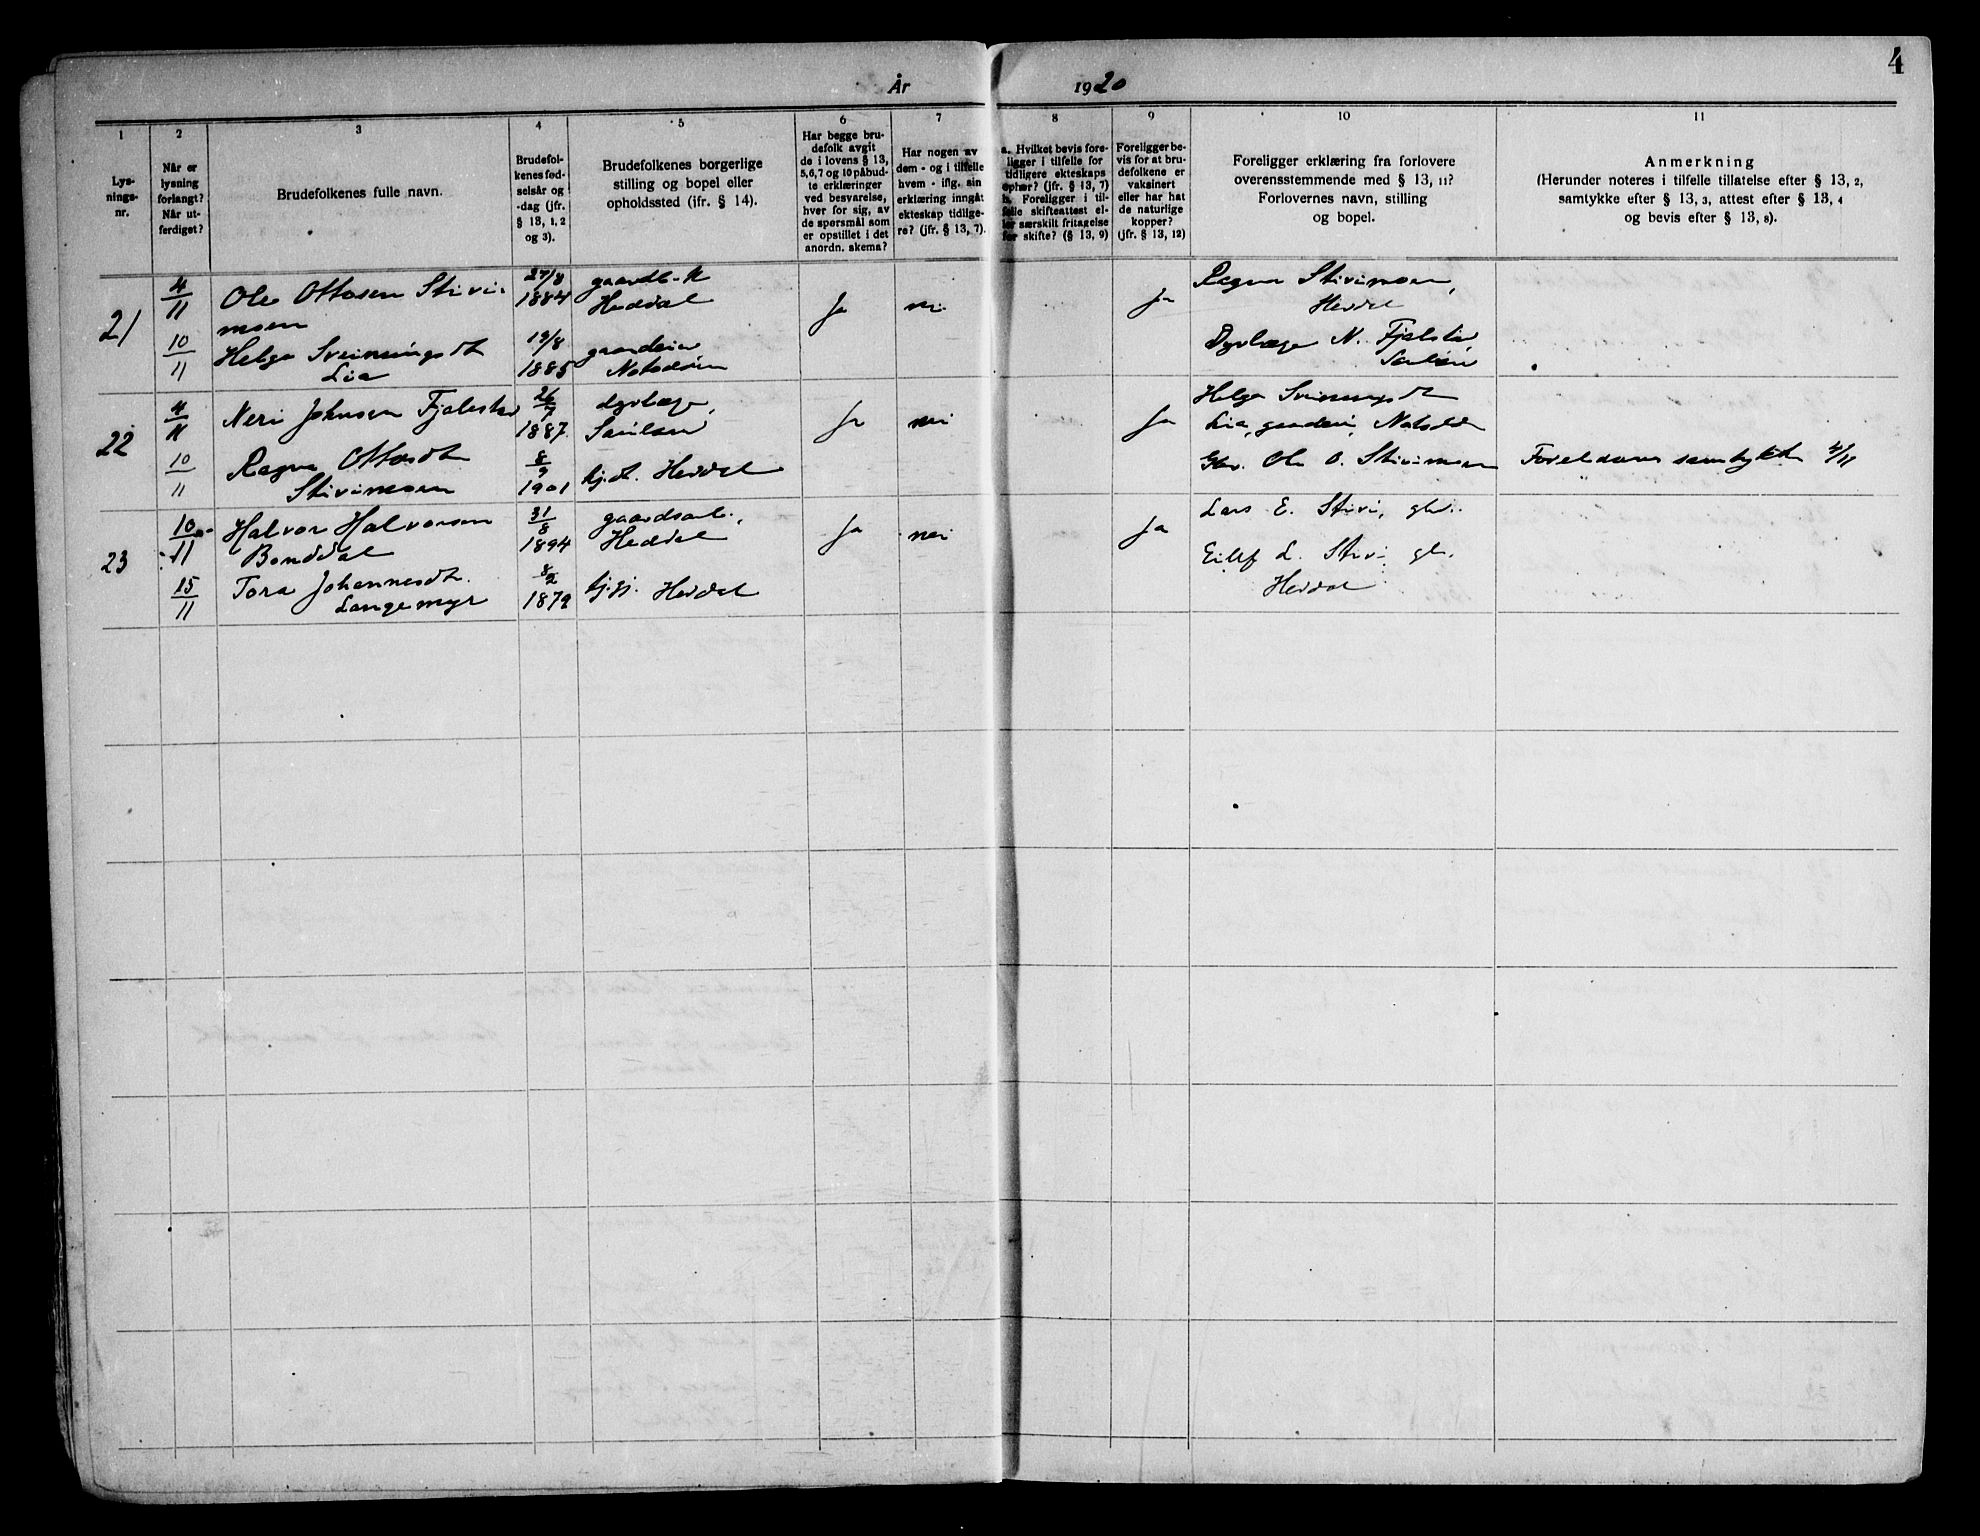 4
År 1920
1
2
3
4
5
6
7
8
9
10
11
Lys-
nings-
nr.
Når er
lysning
forlangt?
Når ut-
ferdiget?
Brudefolkenes fulle navn.
Brudefol-
kenes fød-
selsår og
-dag (jfr.
§ 13, 1, 2
og 3).
Brudefolkenes borgerlige
stilling og bopel eller
opholdssted (ifr. § 14).
Har begge bru-
defolk avgit
de i lovens § 13,
5,6,7 og 10 påbud-
te erklæringer
ved besvarelse,
hver for sig, av
de spørsmål som
er opstillet i det
anordn. skema?
Har nogen av
dem - og i tilfelle
hvem - iflg. sin
erklæring inngåt
ekteskap tidlige-
re? (jfr. § 13, 7).
a. Hvilket bevis fore-
ligger i tilfelle for
tidligere ekteskaps
ophør? (jfr. § 13, 7)
b. Foreligger i til-
felle skifteattest el-
ler særskilt fritagelse
for skifte? (§ 13, 9)
Foreligger be-
vis for at bru-
defolkene er
vaksinert
eller har hat
de naturlige
kopper?
(jfr. § 13, 12)
Foreligger erklæring fra forlovere
overensstemmende med § 13, 11?
Forlovernes navn, stilling
og bopel.
Anmerkning
(Herunder noteres i tilfelle tillatelse efter § 13, 2,
samtykke efter § 13, 3, attest efter § 13, 4
og bevis efter § 13, 8).
21
4/11
10/11
Ole Ottosen Stivi-
moen
Helga Sveinungsdt
Lia
27/8
1884
19/8
1885
Heddal
Ja
nei
Ja
Ragna Stivimoen,
Heddal
Dyrlæge N. Fjalestad,
22
4/11
10/11
Neri Johnsen Fjalestad
Ragna Ottosdt
Stivimoen
26/7
1887
8/9
1901
dyrlæge,
Sauland
Heddal
Ja
nei
Ja
Helga Sveinungsdt
Lia,
Gbr. Ole O. Stivimoen
Foreldrenes samtykke 4/11
23
10/11
15/11
Halvor Halvorsen
Bonddal
Tora Johannesdt.
Langemyr
31/8
1894
8/2
1879
gaardsarb.,
Heddal
Heddal
Ja
nei
Ja
Lars E. Stivi, gbr.
Eilef L. Stivi, gbr.
Heddal